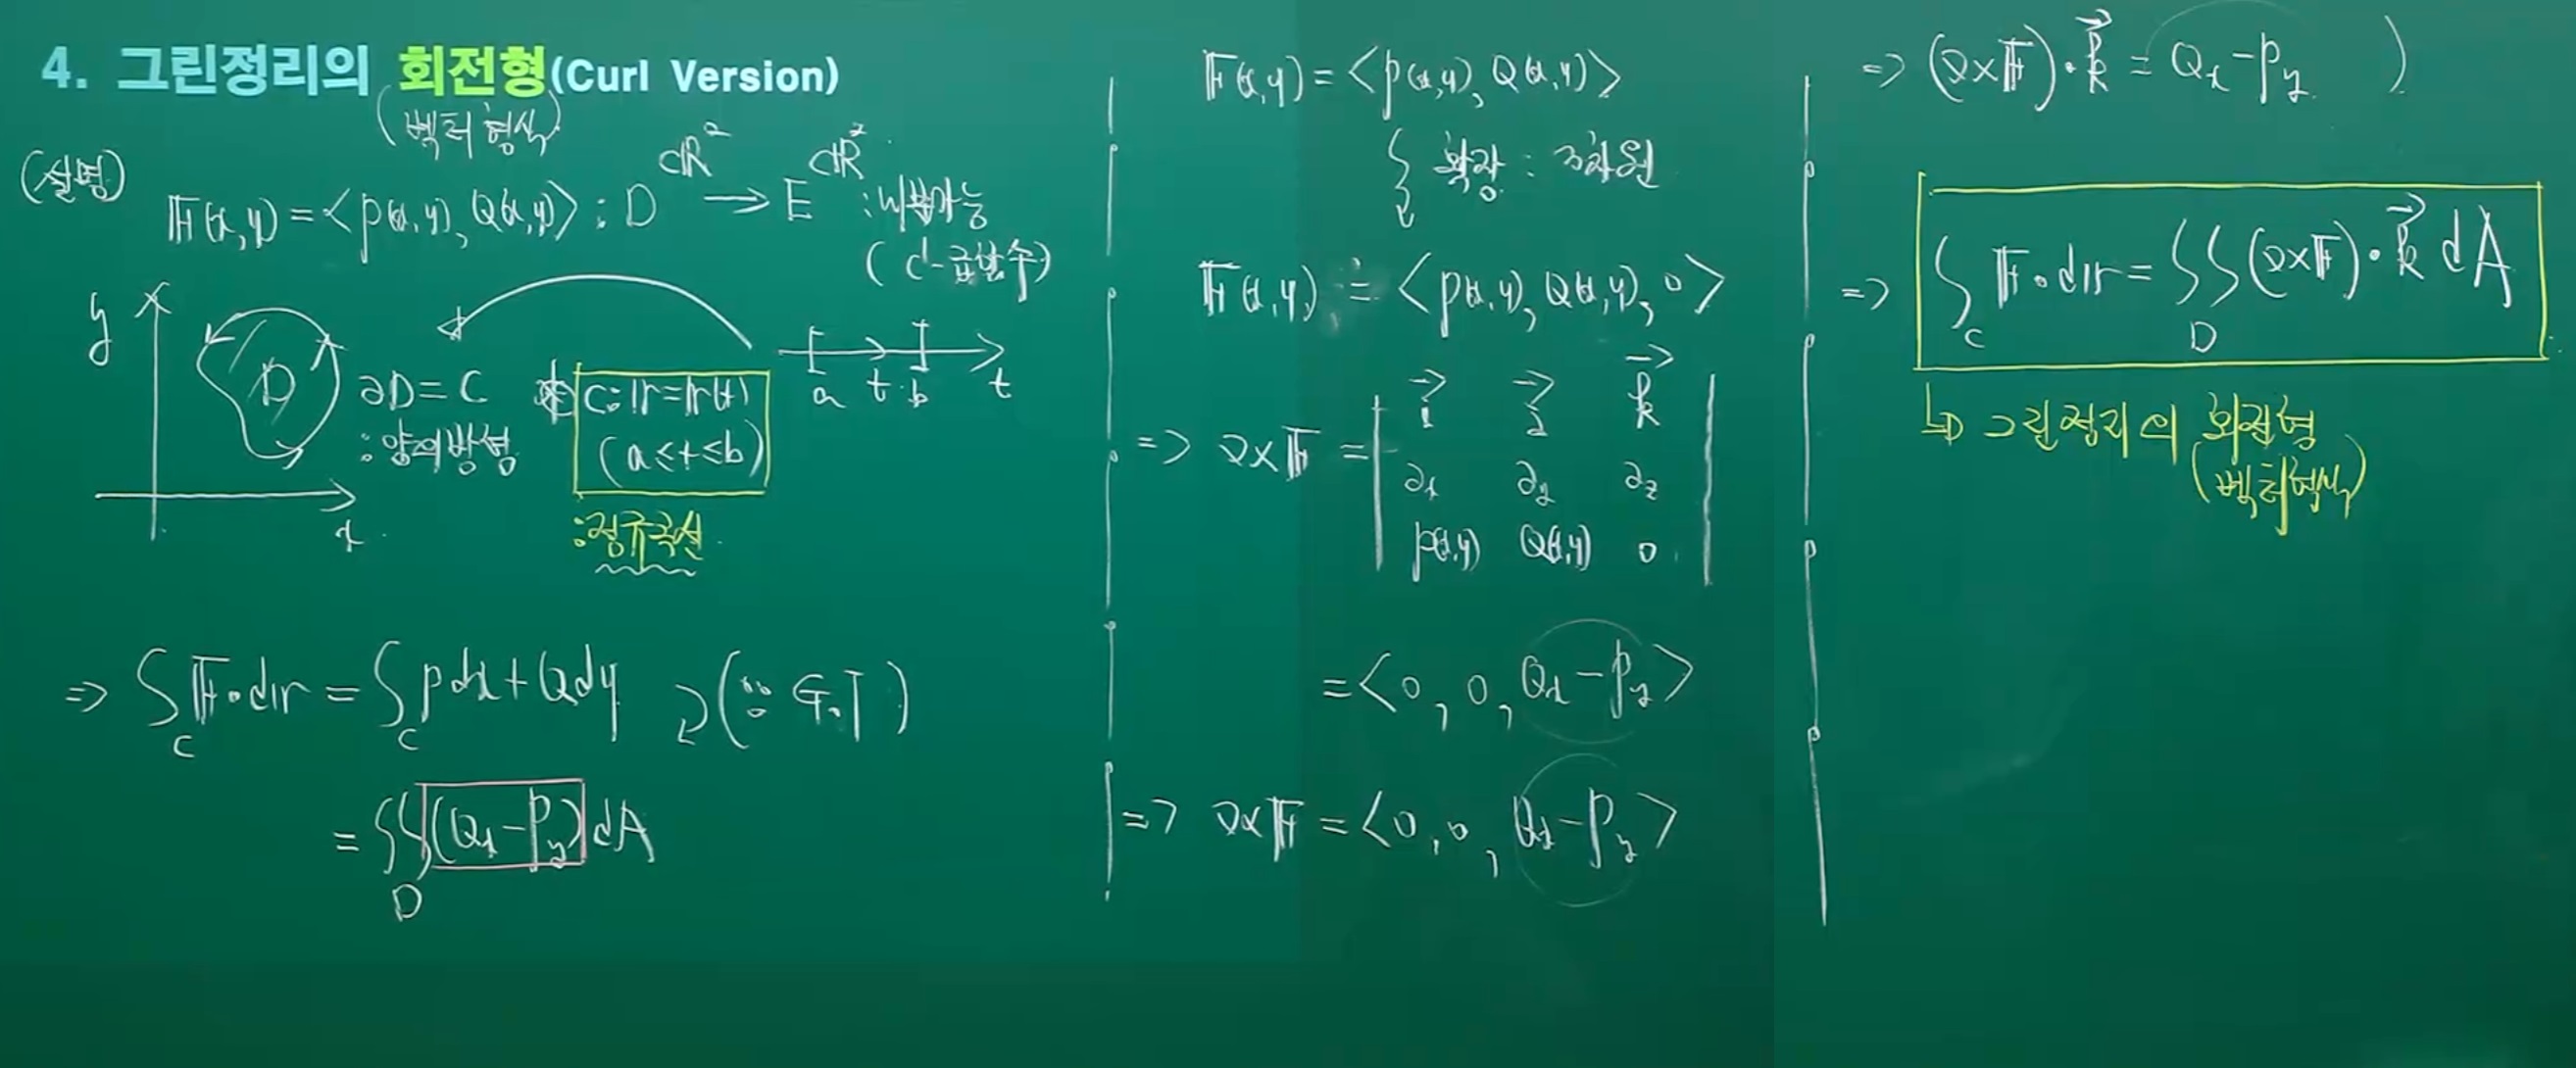 4. 그린정리의 회전형(Curl Version)
(벡터형식)
(설명)
𝔽(x,y) = <P(x,y), Q(x,y)> : D ⊂ℝ² → E ⊂ℝ² : 미분가능
(C¹-급함수)
y
D
x
∂D = C
: 양의방향
C: 𝕣 = 𝕣(t)
(a ≤ t ≤ b)
: 정규곡선
a t b t
⇒ ∫_C 𝔽·d𝕣 = ∫_C Pdx + Qdy (∵ G.T)
= ∬_D (Qx - Py) dA
𝔽(x,y) = <P(x,y), Q(x,y)>
확장 : 3차원
𝔽(x,y) ≐ <P(x,y), Q(x,y), 0>
⇒ ∇×𝔽 = | i⃗ j⃗ k⃗ |
| ∂x ∂y ∂z |
| P(x,y) Q(x,y) 0 |
= <0, 0, Qx - Py>
⇒ ∇×𝔽 = <0, 0, Qx - Py>
⇒ (∇×𝔽)·k⃗ = Qx - Py )
⇒ ∫_C 𝔽·d𝕣 = ∬_D (∇×𝔽)·k⃗ dA
↳ 그린정리의 회전형
(벡터형식)